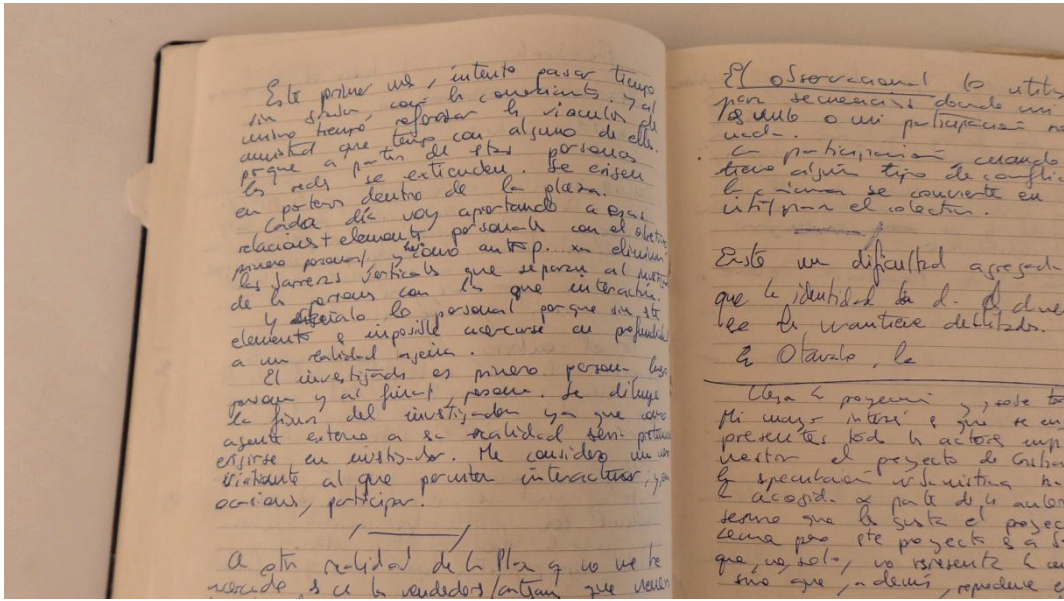 Este primer mes, intento pasar tiempo
sin grabar con los comerciantes. y al
mismo tiempo reforzar los vínculos de
amistad que tengo con alguno de ellos.
porque a partir de estas personas
las redes se extienden. Se erigen
en porteros dentro de la plaza.
Cada día voy aportando a esas
relaciones + elementos personales con el objetivo
primero personal, y como antrop.
las barreras verticales que separan al
de las personas con las que interactúa.
Y lo personal porque sin este
elemento es imposible acercarse en profundidad
a una realidad ajena.
El investigador es primero persona, luego
persona y al final, persona. Se diluye
la figura del investigador ya que como
agente externo a esa realidad sería
erigirse en investigador. Me considero un
visitante al que permiten interactuar, y en
ocasiones, participar.
A otra realidad de la Plaza q no me he
acercado, es a los vendedores/artesan que vienen
El observacional lo utiliz
para secuencias donde mi
o mi participación no
nada.
La participación cuando
tiene algún tipo de conflic
la cámara se convierte en
útil para el colectivo.
Existe una dificultad agregada
que la identidad
se la mantiene debilitada.
En Otavalo, la
Llega la
Mi mayor interés es que se en
presentes todos los actores imp
mostrar el proyecto de
la especulación urbanística
la acogida x parte de la autor
que les gusta el proyec
pero este proyecto
que, no solo, no representa la
sino que, además, reproduce